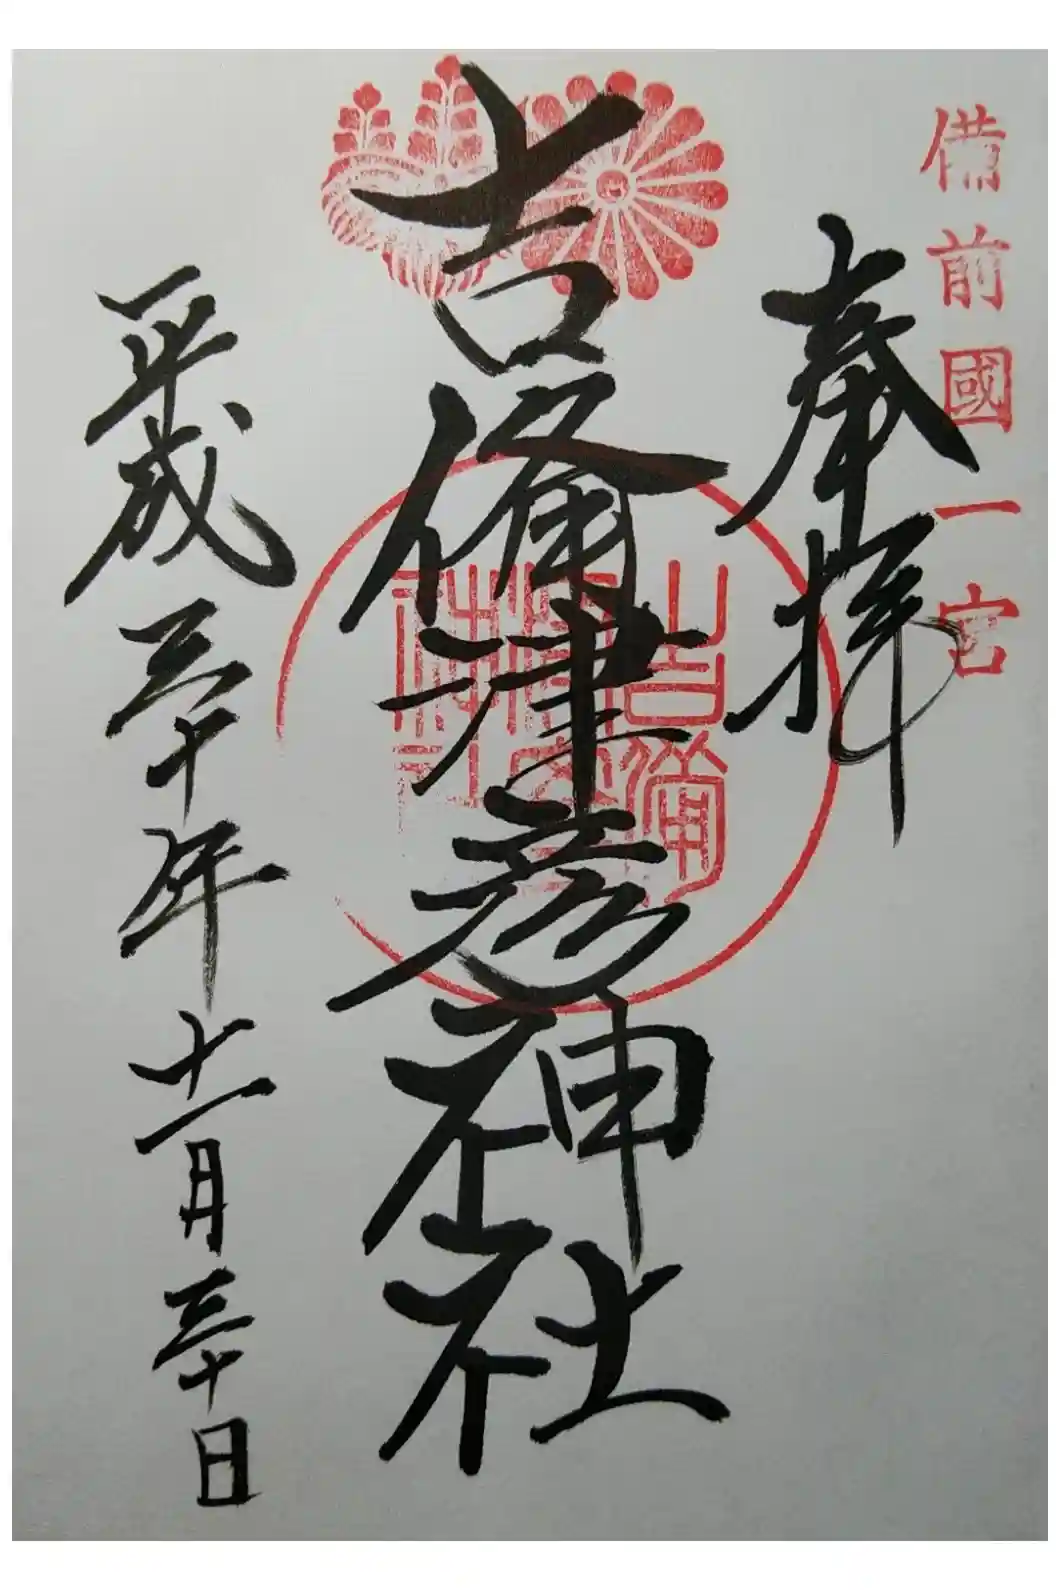 備前國一宮
奉拝
吉備津彦神社
吉備
津彦
神社
平成三十年十一月三十日